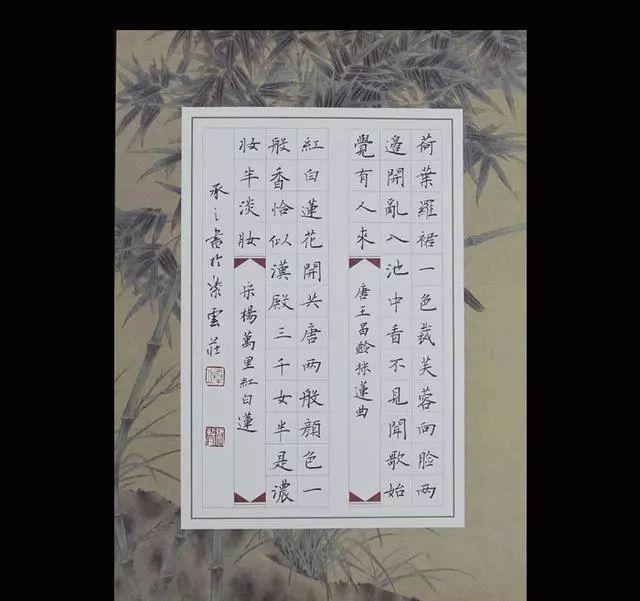 荷葉羅裙一色裁芙蓉向脸两
邊開亂入池中看不見聞歌始
覺有人來
唐王昌齡採蓮曲
紅白蓮花開共唐两般顔色一
般香恰似漢殿三千女半是濃
妝半淡妝
宋楊萬里紅白蓮
承之書於紫雲莊